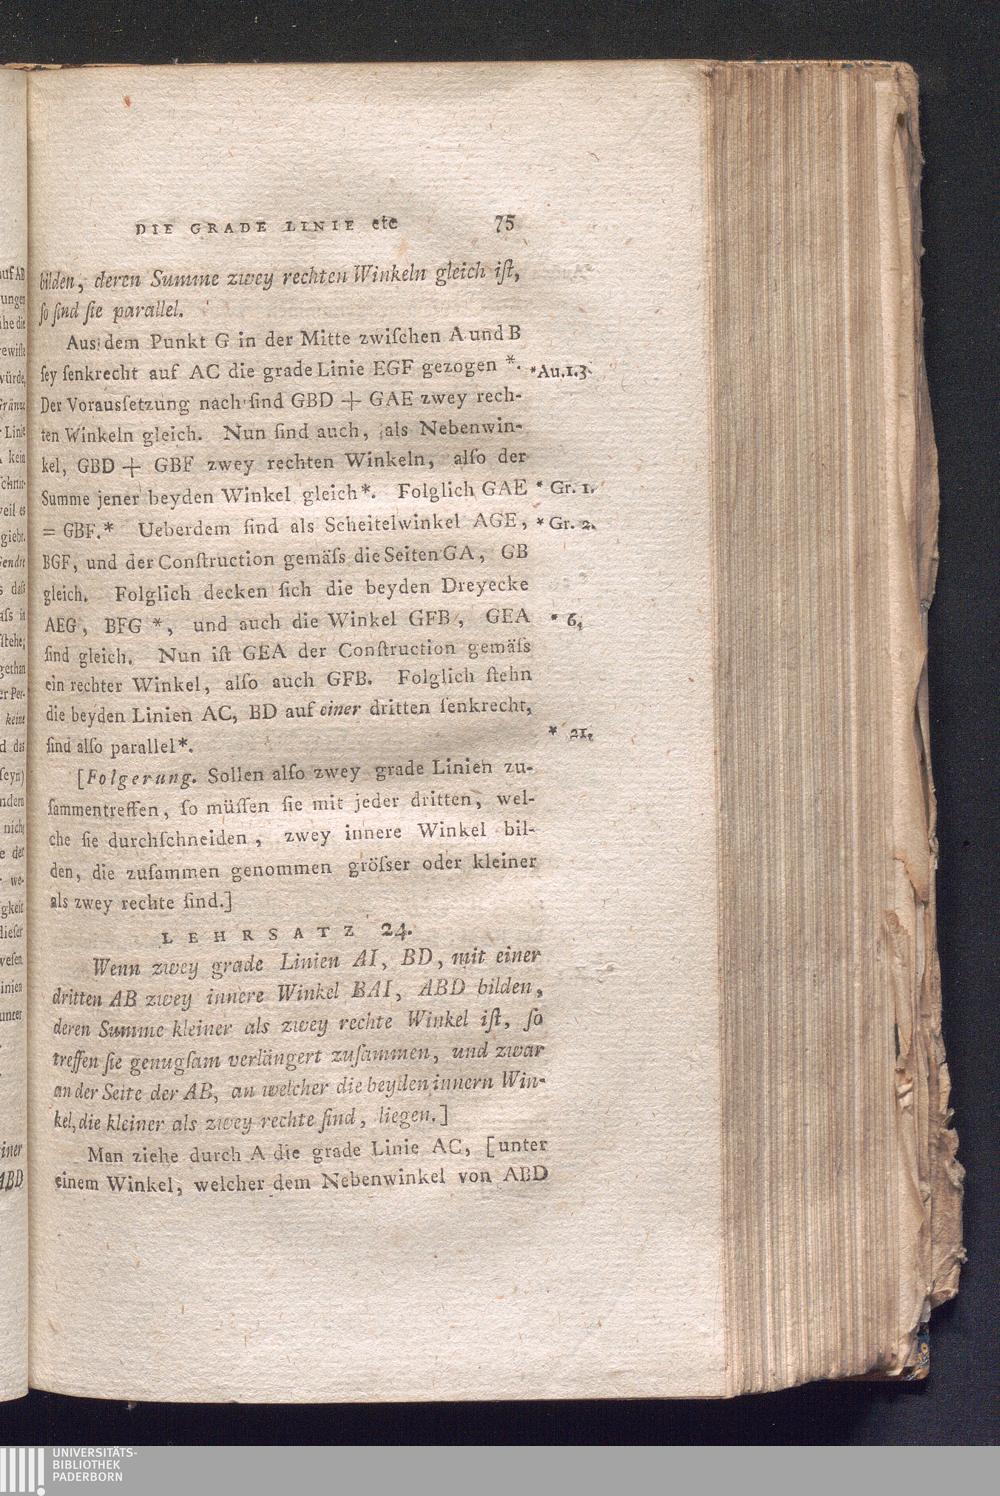 DIE GRADE LINIE etc 75
bilden, deren Summe zwey rechten Winkeln gleich iſt,
ſo ſind ſie parallel.
Aus dem Punkt G in der Mitte zwiſchen A und B
ſey ſenkrecht auf AC die grade Linie EGF gezogen *. *Au.1.3.
Der Vorausſetzung nach ſind GBD + GAE zwey rech-
ten Winkeln gleich. Nun ſind auch, als Nebenwin-
kel, GBD + GBF zwey rechten Winkeln, alſo der
Summe jener beyden Winkel gleich*. Folglich GAE * Gr. 1.
= GBF.* Ueberdem ſind als Scheitelwinkel AGE, * Gr. 2.
BGF, und der Conſtruction gemäſs die Seiten GA, GB
gleich. Folglich decken ſich die beyden Dreyecke
AEG, BFG *, und auch die Winkel GFB, GEA * 6.
ſind gleich. Nun iſt GEA der Conſtruction gemäſs
ein rechter Winkel, alſo auch GFB. Folglich ſtehn
die beyden Linien AC, BD auf einer dritten ſenkrecht,
ſind alſo parallel*. * 21.
[Folgerung. Sollen alſo zwey grade Linien zu-
ſammentreffen, ſo müſſen ſie mit jeder dritten, wel-
che ſie durchſchneiden, zwey innere Winkel bil-
den, die zuſammen genommen gröſser oder kleiner
als zwey rechte ſind.]
LEHRSATZ 24.
Wenn zwey grade Linien AI, BD, mit einer
dritten AB zwey innere Winkel BAI, ABD bilden,
deren Summe kleiner als zwey rechte Winkel iſt, ſo
treffen ſie genugſam verlängert zuſammen, und zwar
an der Seite der AB, an welcher die beyden innern Win-
kel, die kleiner als zwey rechte ſind, liegen.]
Man ziehe durch A die grade Linie AC, [unter
einem Winkel, welcher dem Nebenwinkel von ABD
UNIVERSITÄTS-
BIBLIOTHEK
PADERBORN